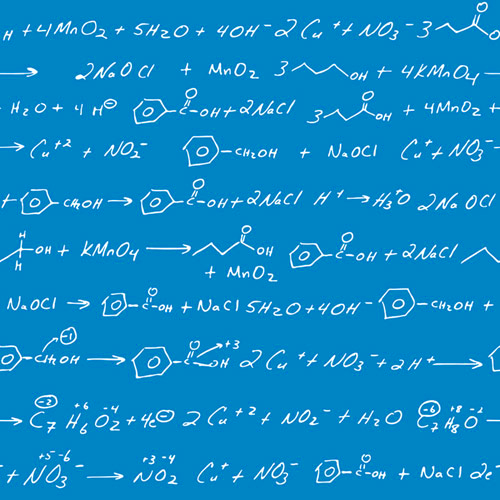 H + 4MnO₂ + 5H₂O + 4OH⁻ 2Cu⁺ + NO₃⁻ 3 O
→ 2NaOCl + MnO₂ 3 OH + 4KMnO₄
H₂O + 4H⊖ O C-OH + 2NaCl 3 O OH + 4MnO₂ +
→ Cu⁺² + NO₂⁻ CH₂OH + NaOCl Cu⁺ + NO₃⁻
+ CH₂OH → O C-OH + 2NaCl H⁺ → H₃⁺O 2NaOCl
H OH H + KMnO₄ → O OH + MnO₂ O C-OH + 2NaCl
NaOCl → O C-OH + NaCl 5H₂O + 4OH⁻ CH₂OH +
CH₂OH -1 → O C-OH +3 2Cu⁺ + NO₃⁻ + 2H⁺ →
→ C₇⁻² H₆⁺⁶ O₂⁻⁴ + 4e⊖ 2Cu⁺² + NO₂⁻ + H₂O C₇⁻⁶ H₈⁺⁸ O⁻²
+ NO₃⁻ +5 -6 → NO₂ +3 -4 Cu⁺ + NO₃⁻ O C-OH + NaCl 2e⁻